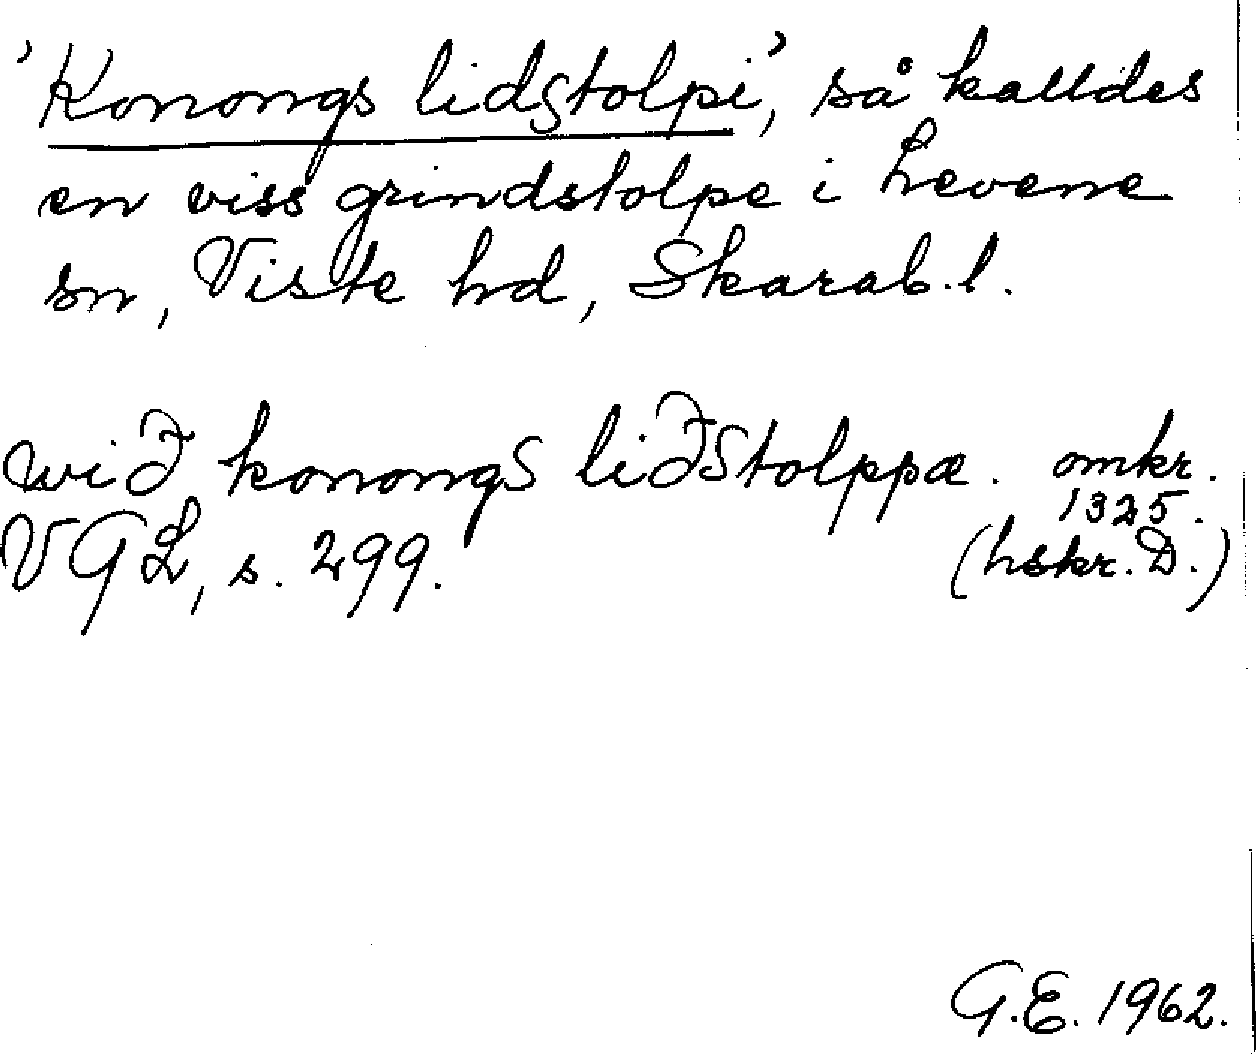 ’Konongs lidstolpi’, så kalldes
en viss grindstolpe i Levene
sn, Viste hd, Skarab. l.
wið konongs liðstolppæ. omkr. 1325.
VGL, s. 299. (hskr. D.)
G.E. 1962.